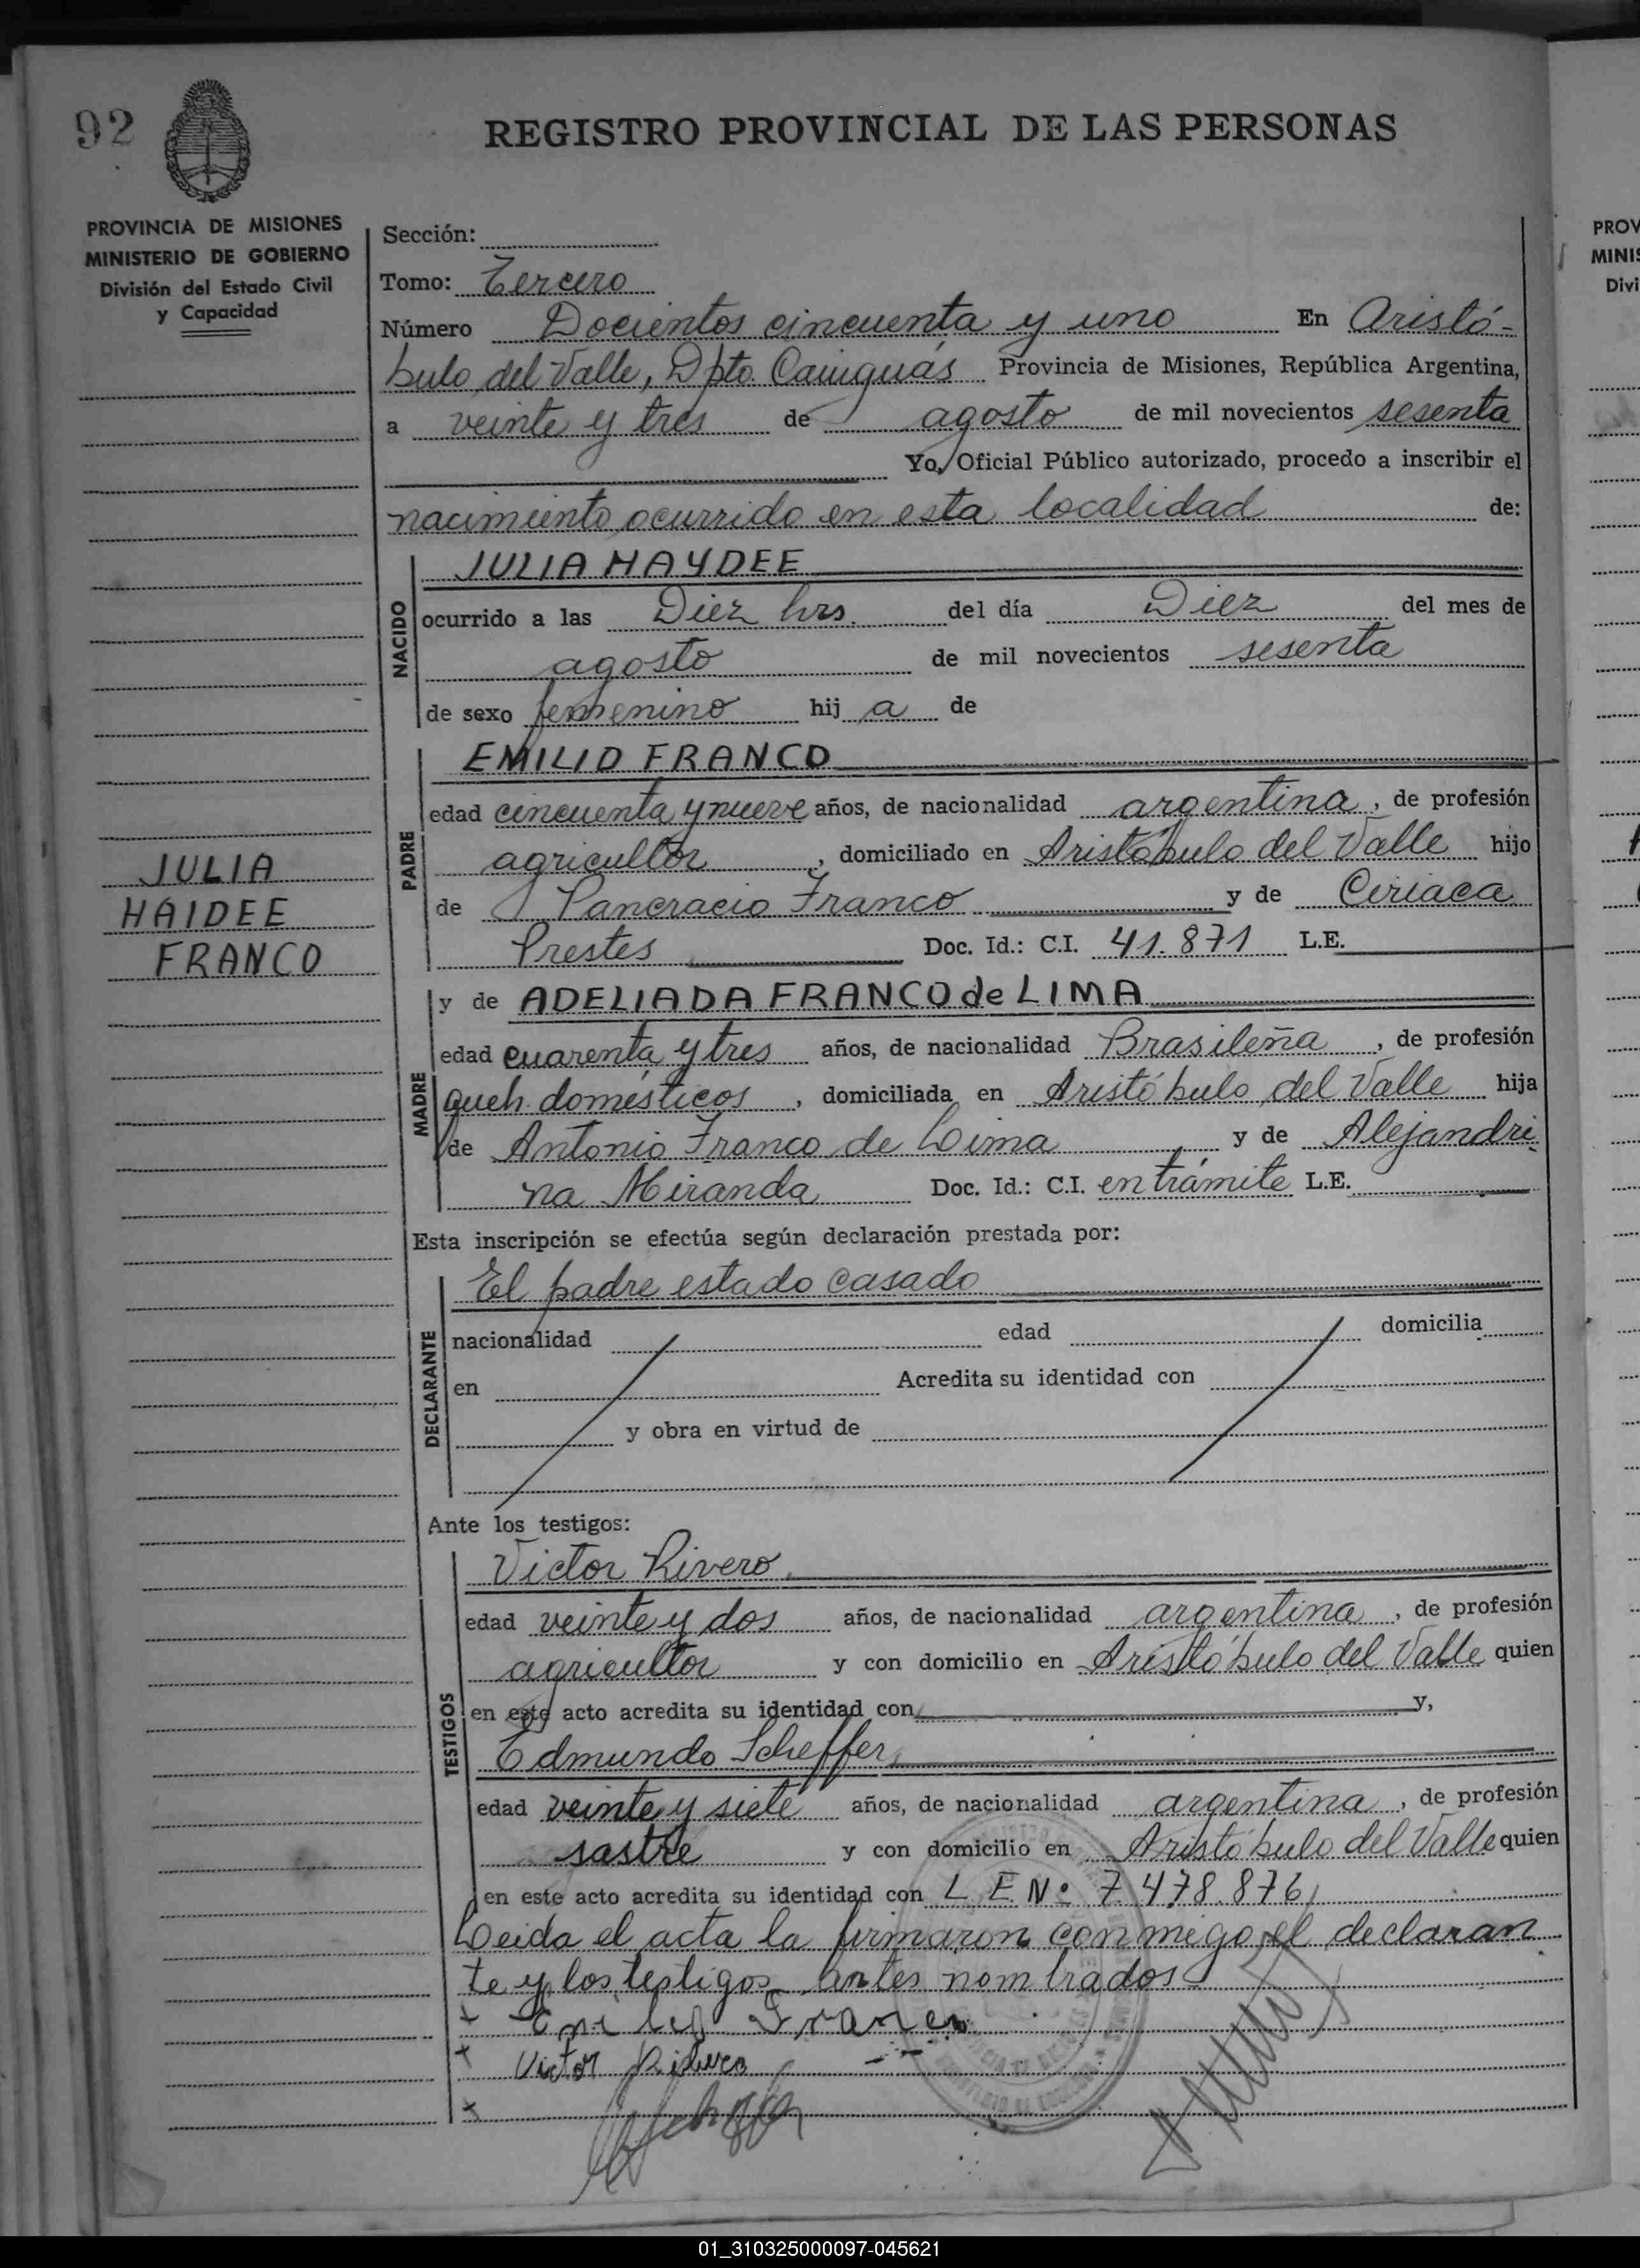 92
REGISTRO PROVINCIAL DE LAS PERSONAS
PROVINCIA DE MISIONES
MINISTERIO DE GOBIERNO
División del Estado Civil
y Capacidad
Sección:
Tomo: Tercero
Número Docientos cincuenta y uno En Aristó-
bulo del Valle, Dpto. Cainguás Provincia de Misiones, República Argentina,
a veinte y tres de agosto de mil novecientos sesenta
Yo, Oficial Público autorizado, procedo a inscribir el
nacimiento ocurrido en esta localidad de:
NACIDO
JULIA HAYDEE
ocurrido a las Diez hrs. del día Diez del mes de
agosto de mil novecientos sesenta
de sexo femenino hij a de
PADRE
EMILIO FRANCO
edad cincuenta y nueve años, de nacionalidad argentina, de profesión
agricultor, domiciliado en Aristóbulo del Valle hijo
de Pancracio Franco y de Ciriaca
Prestes Doc. Id.: C.I. 41.871 L.E.
JULIA
HAIDEE
FRANCO
MADRE
y de ADELIADA FRANCO de LIMA
edad cuarenta y tres años, de nacionalidad Brasileña, de profesión
queh. domésticos, domiciliada en Aristóbulo del Valle hija
de Antonio Franco de Loima y de Alejandri
na Miranda Doc. Id.: C.I. en trámite L.E.
Esta inscripción se efectúa según declaración prestada por:
DECLARANTE
El padre estado casado
nacionalidad edad domicilia
en Acredita su identidad con
y obra en virtud de
Ante los testigos:
TESTIGOS
Victor Rivero
edad veinte y dos años, de nacionalidad argentina, de profesión
agricultor y con domicilio en Aristóbulo del Valle quien
en este acto acredita su identidad con y,
Edmundo Scheffer
edad veinte y siete años, de nacionalidad argentina, de profesión
sastre y con domicilio en Aristóbulo del Valle quien
en este acto acredita su identidad con L. E. Nº 7.478.876
Leida el acta la firmaron conmigo, el declaran
te y los testigos antes nombrados
+ Emilio Franco
+ Victor Rivero
+
PROV
MINIS
Divi
01_310325000097-045621